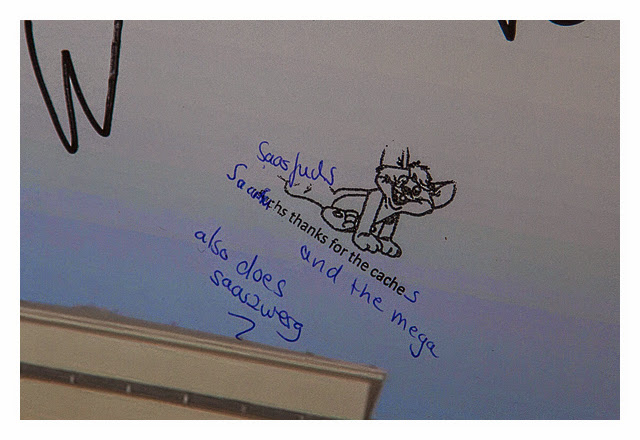 W
Saasfuchs
Saasfuchs thanks for the caches
and the mega
also does
saaszwerg